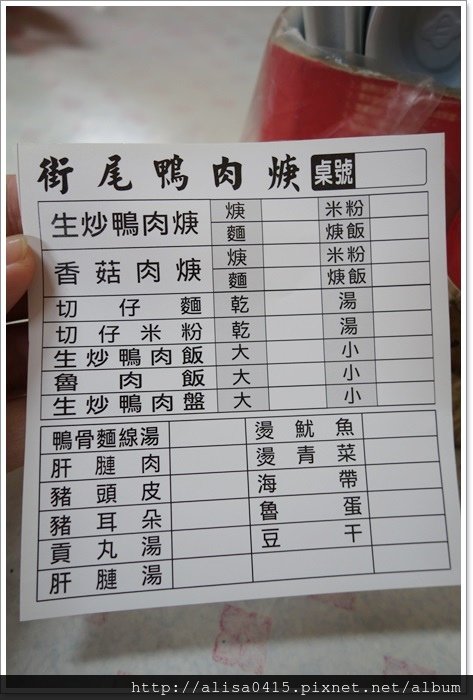 街尾鴨肉焿 桌號
生炒鴨肉焿 焿 米粉
麵 焿飯
香菇肉焿 焿 米粉
麵 焿飯
切仔麵 乾 湯
切仔米粉 乾 湯
生炒鴨肉飯 大 小
魯肉飯 大 小
生炒鴨肉盤 大 小
鴨骨麵線湯 燙魷魚
肝膁肉 燙青菜
豬頭皮 海帶
豬耳朵 魯蛋
貢丸湯 豆干
肝膁湯
http://alisa0415.pixnet.net/album